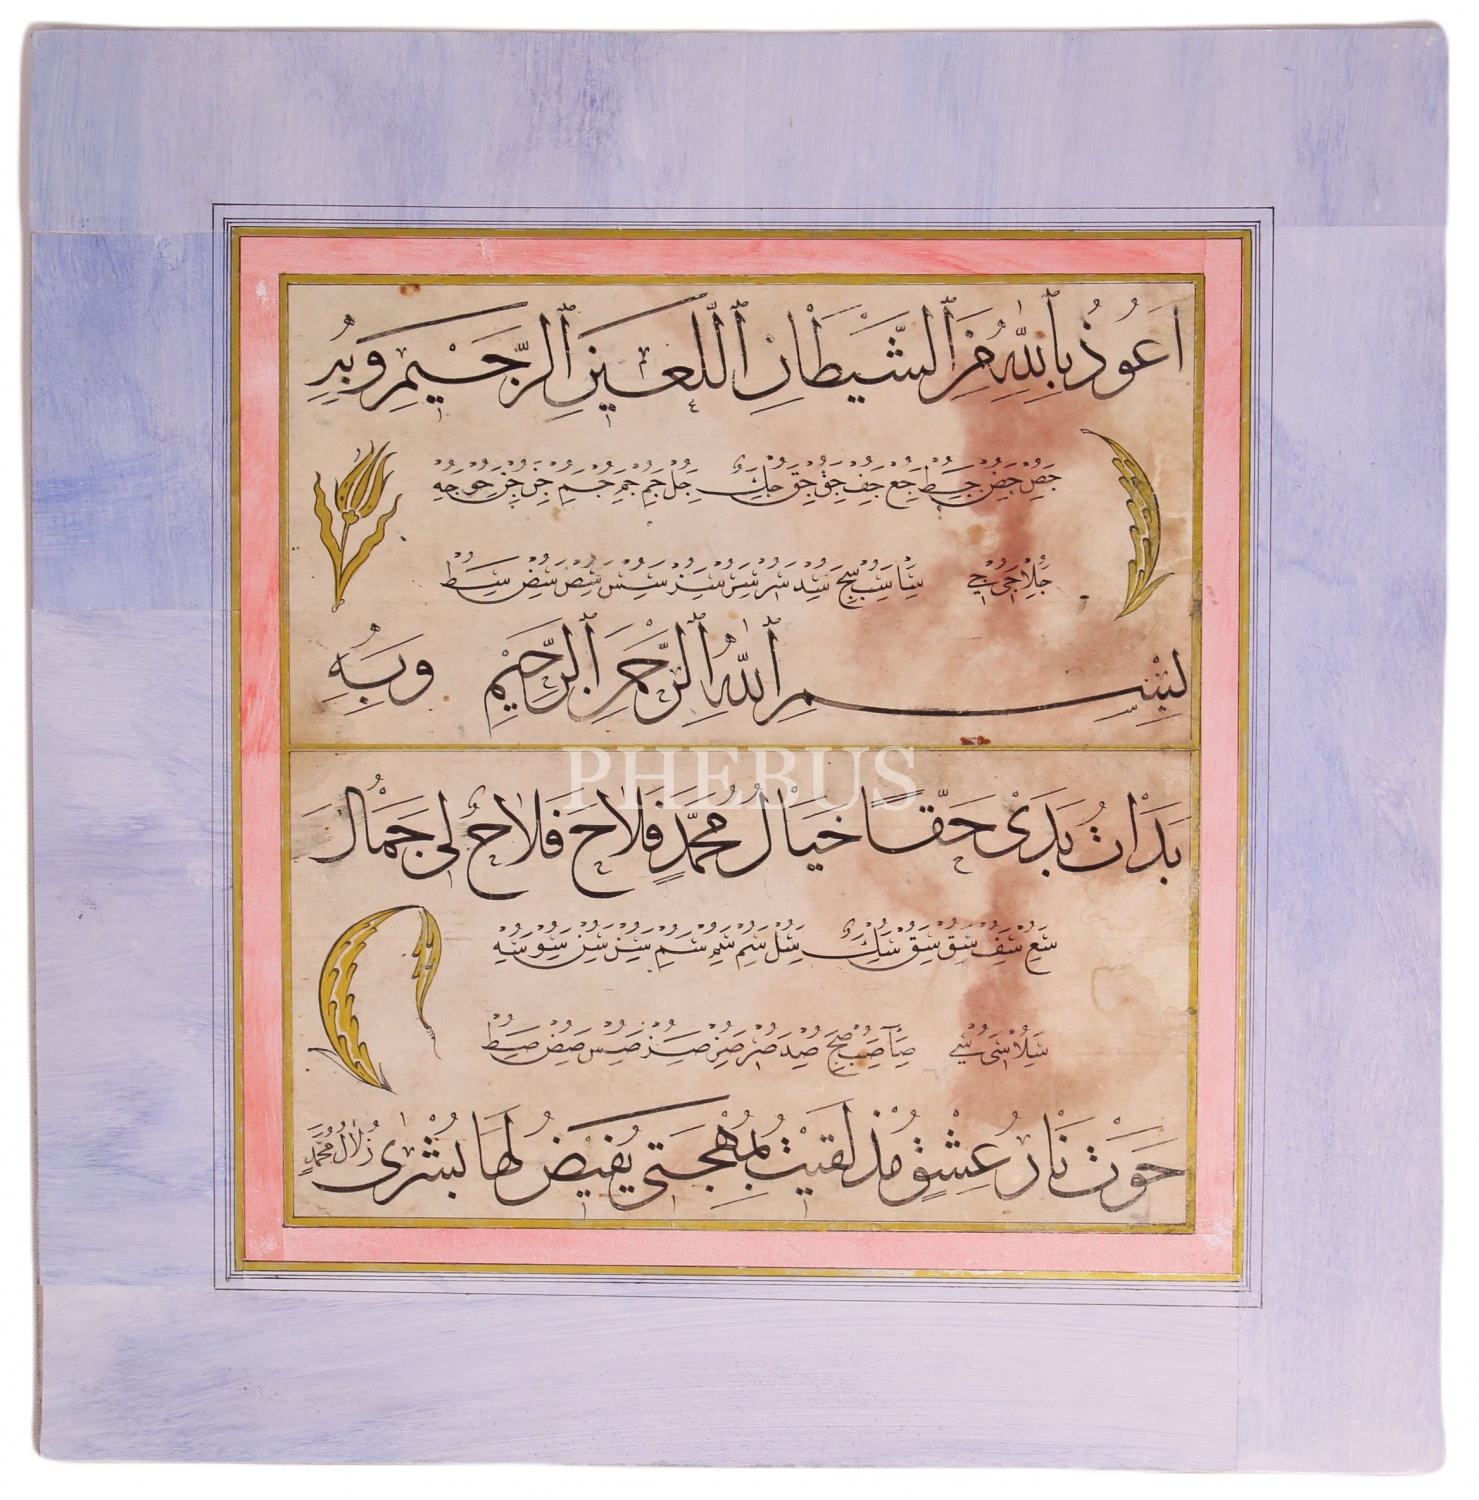 اَعُوذُ بِاللّٰهِ مِنَ الشَّيْطَانِ اللَّعِينِ الرَّجِيمِ وَبِهِ
جص جض جط جع جف جق جق جك جل جم جم جم جن جن جو جه
جلا جى جي سا سب سج سد سر سر سز سس سص سض سط
بِسْمِ اللّٰهِ الرَّحْمٰنِ الرَّحِيمِ وَبِهِ
PHEBUS
بَدَاتُ بَدَىْ حَقًّا خَيَالُ مُحَمَّدٍ فَلَاحَ فَلَاحٌ لى جَمَالُ
سع سف سق سق سك سل سم سم سم سن سن سو سه
سلا سى سي صا صب صج صد صر صر صز صس صض صط
حَوَتْ نَارُ عِشْقٍ مُذْ لَقِيتُ بِمُهْجَتِى يُفِيضُ لَهَا بُشْرٰى زُلَالُ مُحَمَّدٍ